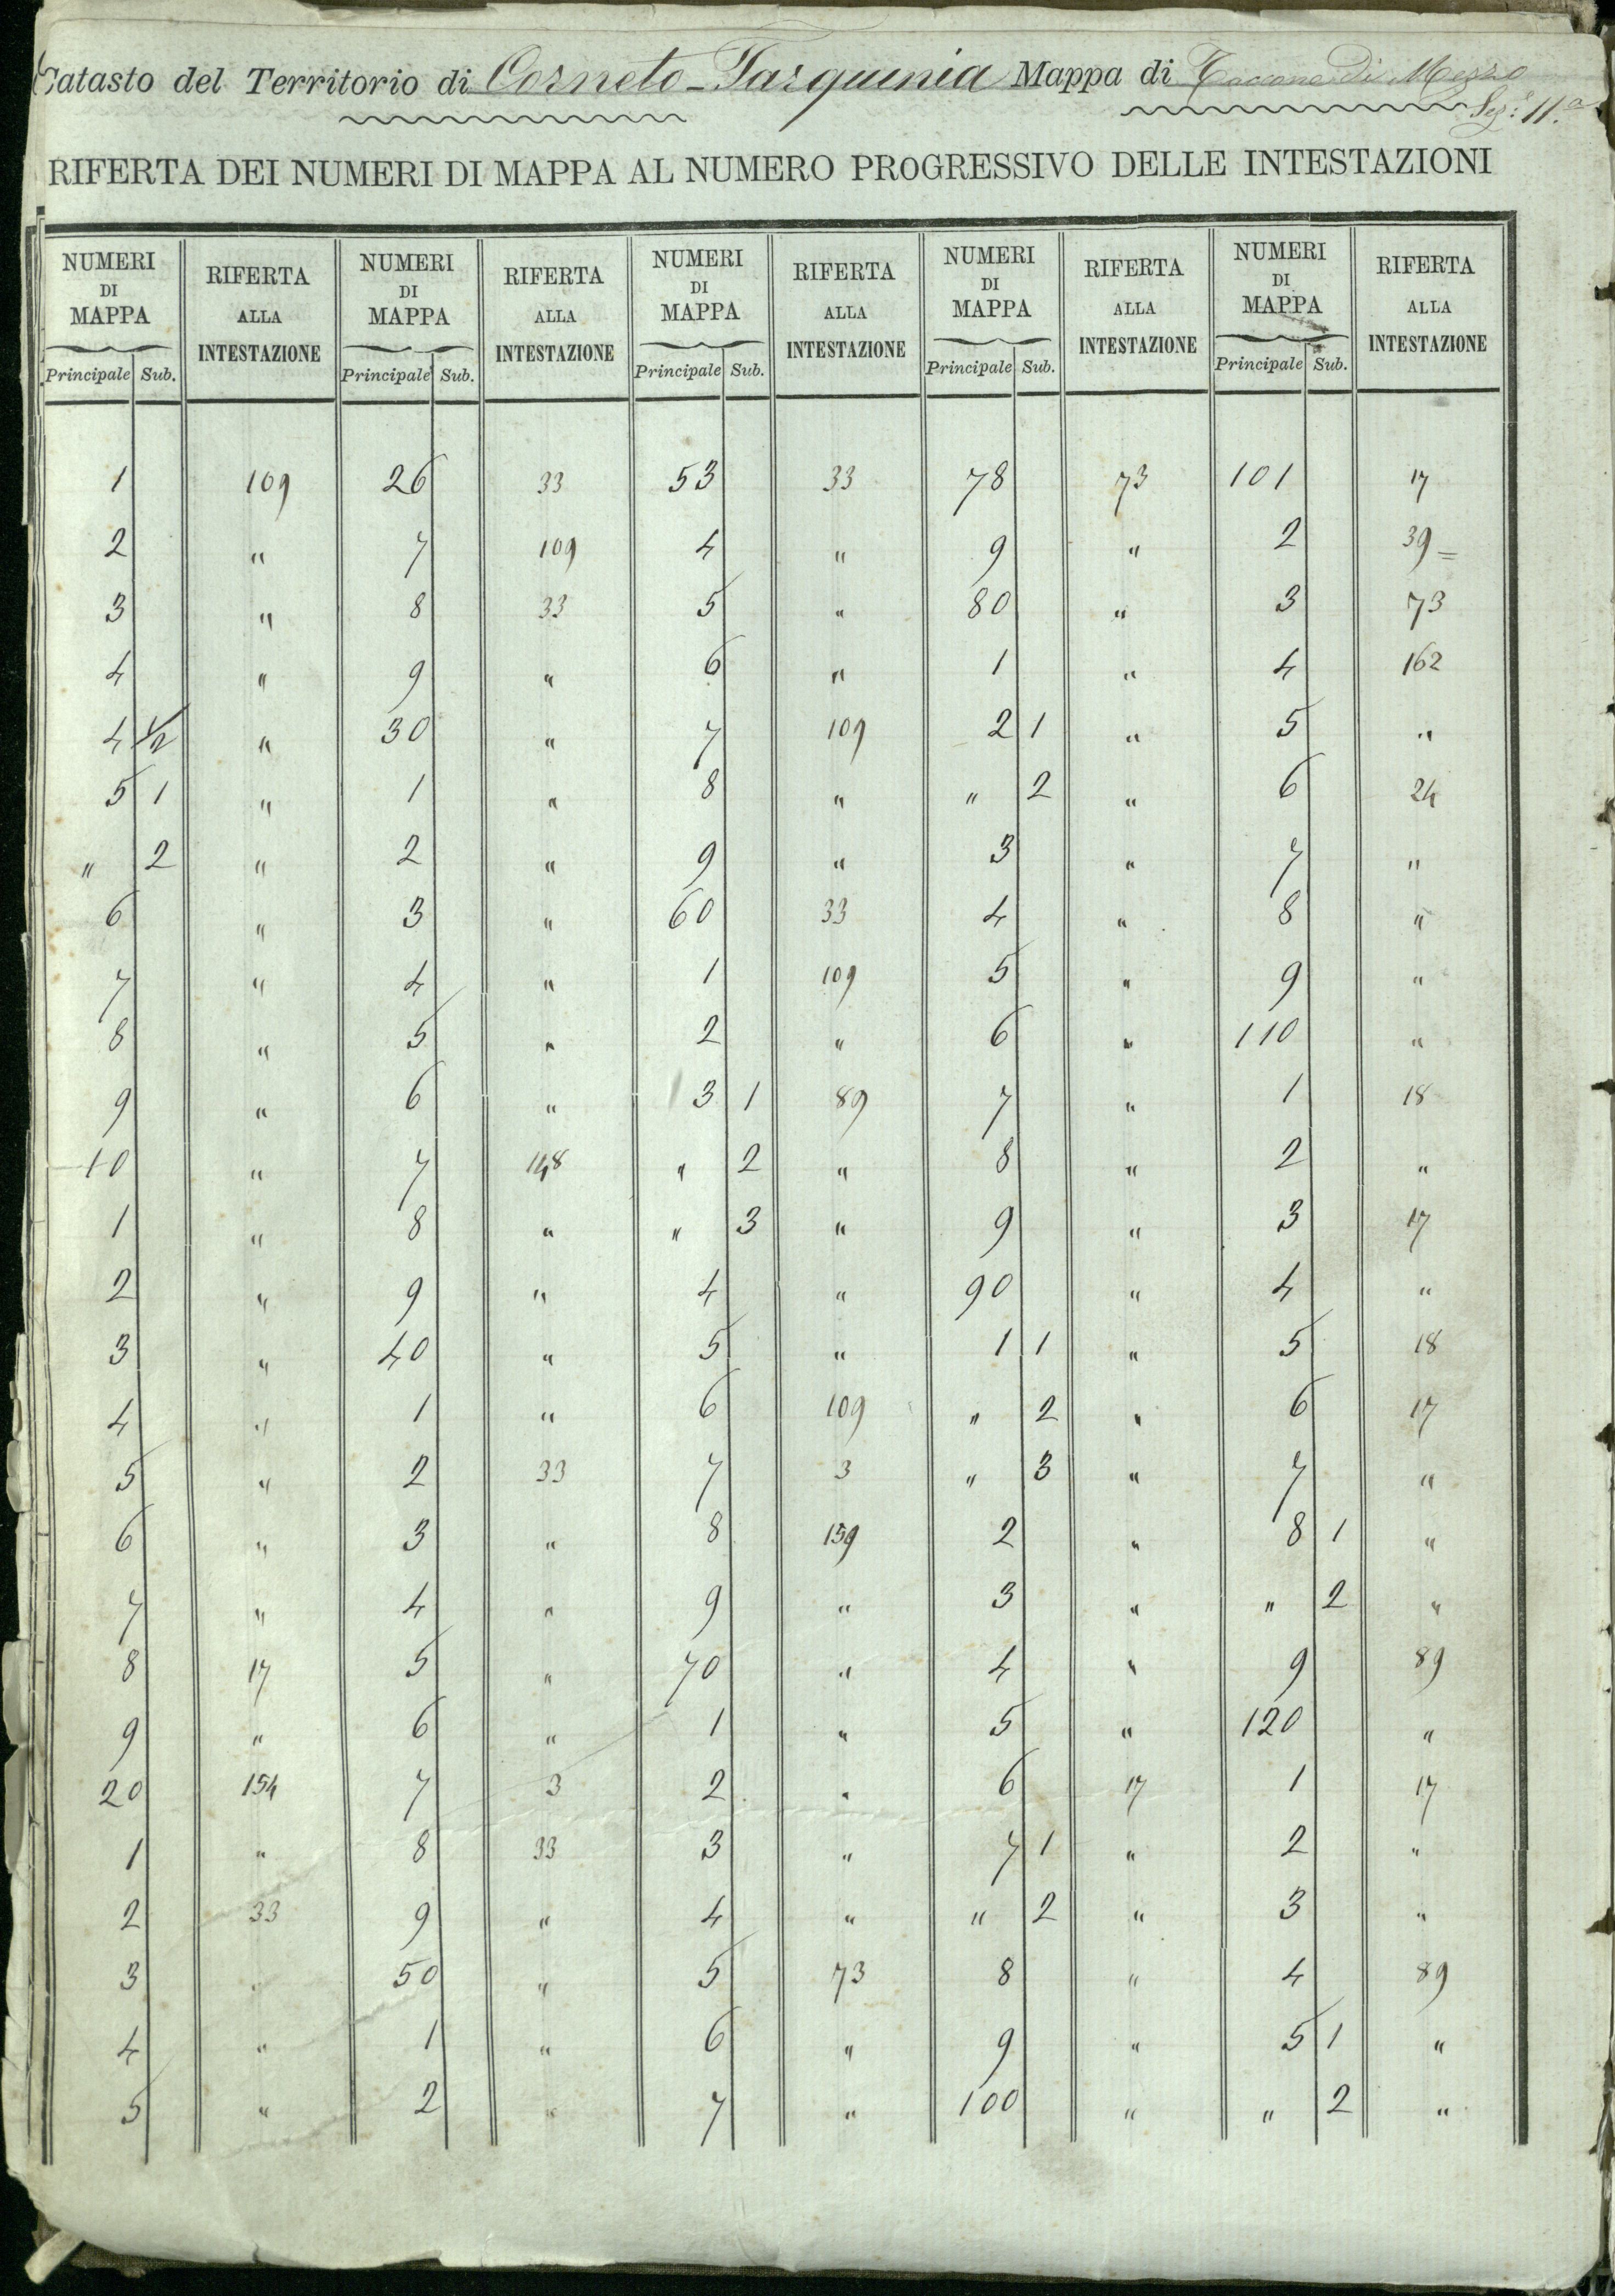 Catasto del Territorio di Corneto-Tarquinia Mappa di Taccone di Mezzo
Sez: 11.a
RIFERTA DEI NUMERI DI MAPPA AL NUMERO PROGRESSIVO DELLE INTESTAZIONI
NUMERI DI MAPPA RIFERTA ALLA INTESTAZIONE NUMERI DI MAPPA RIFERTA ALLA INTESTAZIONE NUMERI DI MAPPA RIFERTA ALLA INTESTAZIONE NUMERI DI MAPPA RIFERTA ALLA INTESTAZIONE NUMERI DI MAPPA RIFERTA ALLA INTESTAZIONE
Principale Sub. Principale Sub. Principale Sub. Principale Sub. Principale Sub.
1 109 26 33 53 33 78 73 101 17
2 " 7 109 4 " 9 " 2 39=
3 " 8 33 5 " 80 " 3 73
4 " 9 " 6 " 1 " 4 162
4 1/2 " 30 " 7 109 2 1 " 5 "
5 1 " 1 " 8 " " 2 " 6 24
" 2 " 2 " 9 " 3 " 7 "
6 " 3 " 60 33 4 " 8 "
7 " 4 " 1 109 5 " 9 "
8 " 5 " 2 " 6 " 110 "
9 " 6 " 3 1 89 7 " 1 18
10 " 7 148 " 2 " 8 " 2 "
1 " 8 " " 3 " 9 " 3 17
2 " 9 " 4 " 90 " 4 "
3 " 40 " 5 " 1 1 " 5 18
4 " 1 " 6 109 " 2 " 6 17
5 " 2 33 7 3 " 3 " 7 "
6 " 3 " 8 159 2 " 8 1 "
7 " 4 " 9 " 3 " " 2 "
8 17 5 " 70 " 4 " 9 89
9 " 6 " 1 " 5 " 120 "
20 154 7 3 2 " 6 17 1 17
1 " 8 33 3 " 7 1 " 2 "
2 33 9 " 4 " " 2 " 3 "
3 " 50 " 5 73 8 " 4 89
4 " 1 " 6 " 9 " 5 1 "
5 " 2 " 7 " 100 " " 2 "